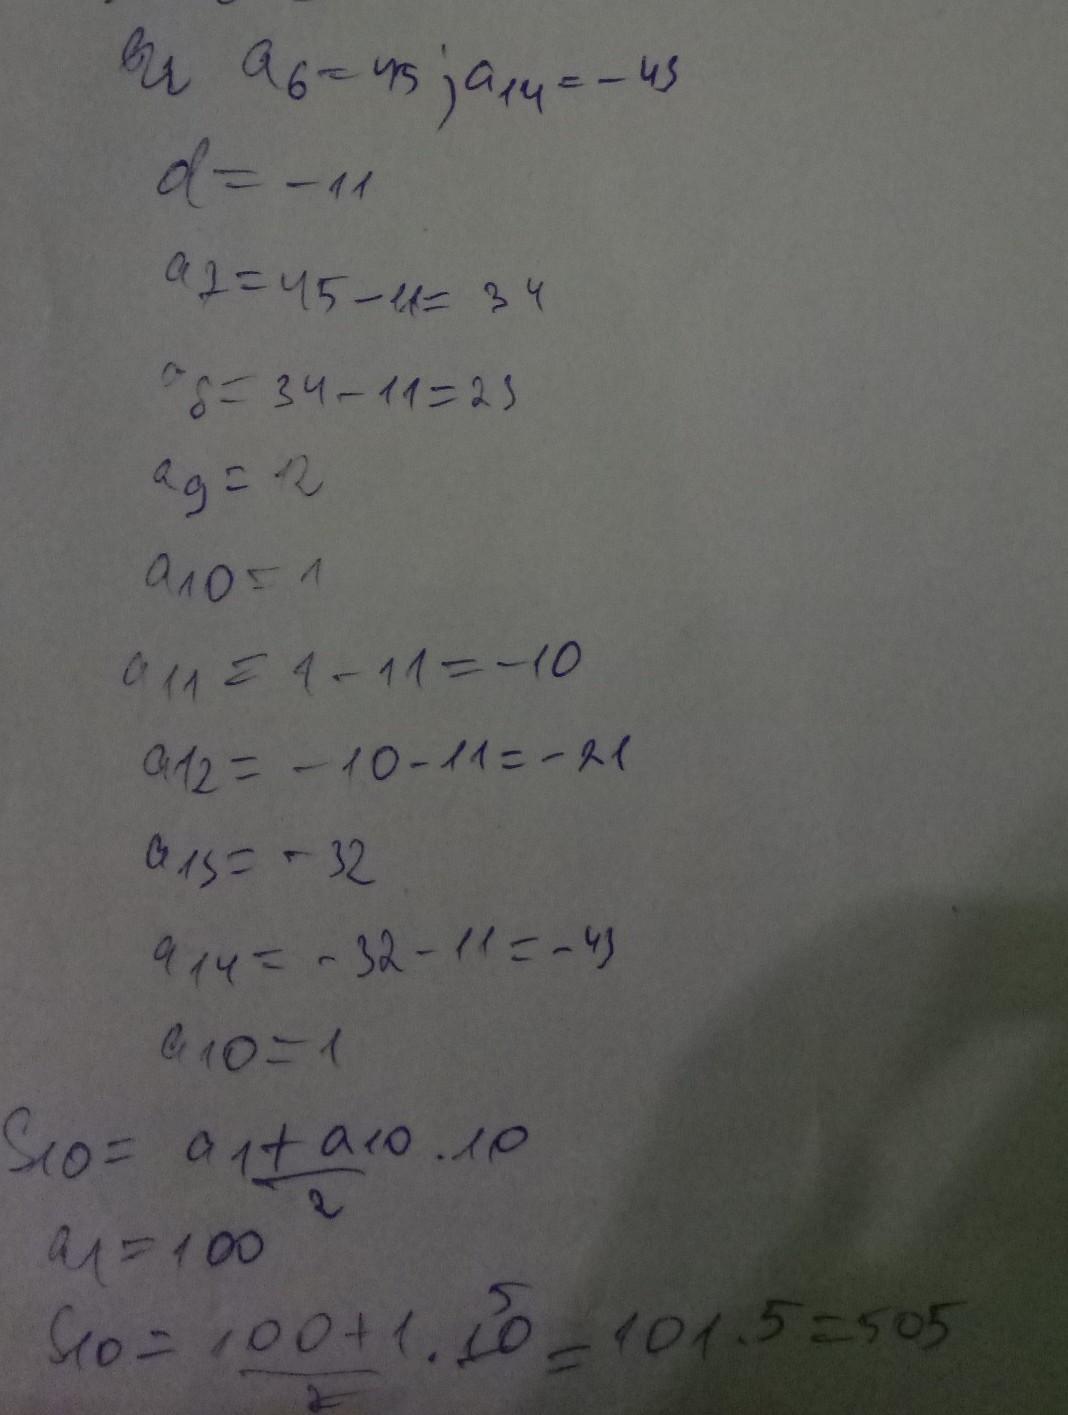 a6 = 45; a14 = -43
d = -11
a7 = 45 - 11 = 34
a8 = 34 - 11 = 23
a9 = 12
a10 = 1
a11 = 1 - 11 = -10
a12 = -10 - 11 = -21
a13 = -32
a14 = -32 - 11 = -43
a10 = 1
S10 = (a1 + a10)/2 . 10
a1 = 100
S10 = (100 + 1)/2 . 10 5 = 101 . 5 = 505